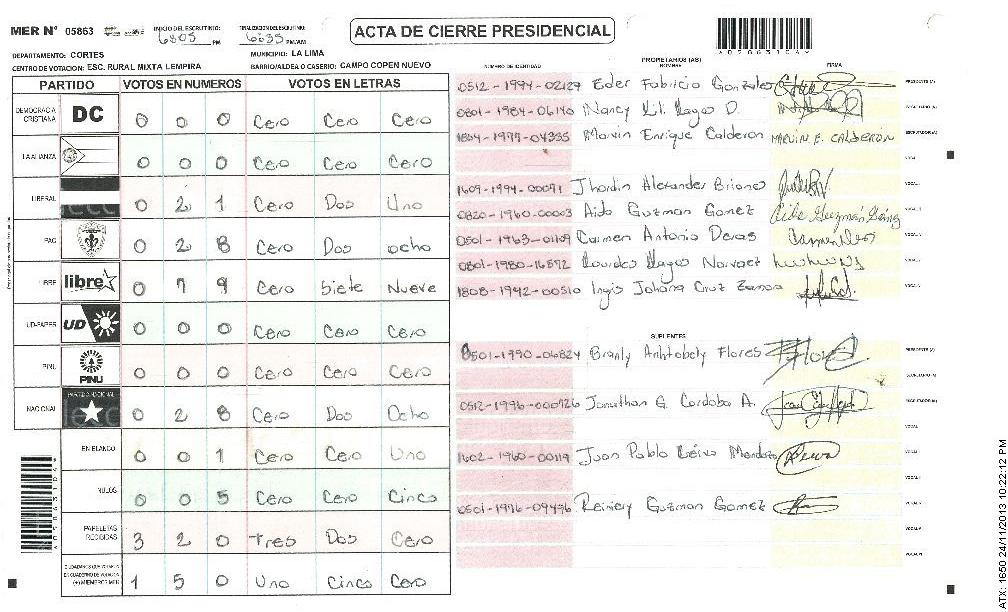 MER Nº 05863 INICIO DEL ESCRUTINIO: 6:05 PM FINALIZACION DEL ESCRUTINIO: 6:35 PM/AM
ACTA DE CIERRE PRESIDENCIAL
DEPARTAMENTO: CORTES MUNICIPIO: LA LIMA
CENTRO DE VOTACION: ESC. RURAL MIXTA LEMPIRA BARRIO/ALDEA O CASERIO: CAMPO COPEN NUEVO
PARTIDO VOTOS EN NUMEROS VOTOS EN LETRAS
DEMOCRACIA CRISTIANA DC 0 0 0 Cero Cero Cero
LA ALIANZA 0 0 0 Cero Cero Cero
LIBERAL 0 2 1 Cero Dos Uno
PAC 0 2 8 Cero Dos ocho
LIBRE libre 0 7 9 Cero Siete Nueve
UD-FAPER UD 0 0 0 Cero Cero Cero
PINU PINU 0 0 0 Cero Cero Cero
NACIONAL PARTIDO NACIONAL 0 2 8 Cero Dos Ocho
EN BLANCO 0 0 1 Cero Cero Uno
NULOS 0 0 5 Cero Cero Cinco
PAPELETAS RECIBIDAS 3 2 0 Tres Dos Cero
CIUDADANOS QUE VOTARON EN CUADERNO DE VOTACION (+) MIEMBROS MER 1 5 0 Uno Cinco Cero
PROPIETARIOS (AS)
NUMERO DE IDENTIDAD NOMBRE FIRMA
0512-1994-02129 Eder Fabricio Gonzales PRESIDENTE (A)
0801-1984-06140 Nancy Lil. Lagos D. SECRETARIO (A)
1804-1977-04355 Marvin Enrique Calderon MARVIN E. CALDERON ESCRUTADOR (A)
VOCAL I
1609-1994-00091 Jhardin Alexander Briones
0820-1960-00003 Aida Guzman Gomez Aida Guzmán Gómez
0501-1963-01109 Carmen Antonio Deras
0801-1980-16592 Lourdes Lagos Narvaez
1808-1942-00510 Ingis Johana Cruz
SUPLENTES
0501-1990-06824 Branly Anhtobely Flores PRESIDENTE (A)
SECRETARIO (A)
0512-1996-000726 Jonathan G. Cordoba A. ESCRUTADOR (A)
1602-1960-00119 Juan Pablo Leiva Mendoza
0501-1996-09496 Reiniery Guzman Gomez
ATX: 1650 24/11/2013 10:22:12 PM